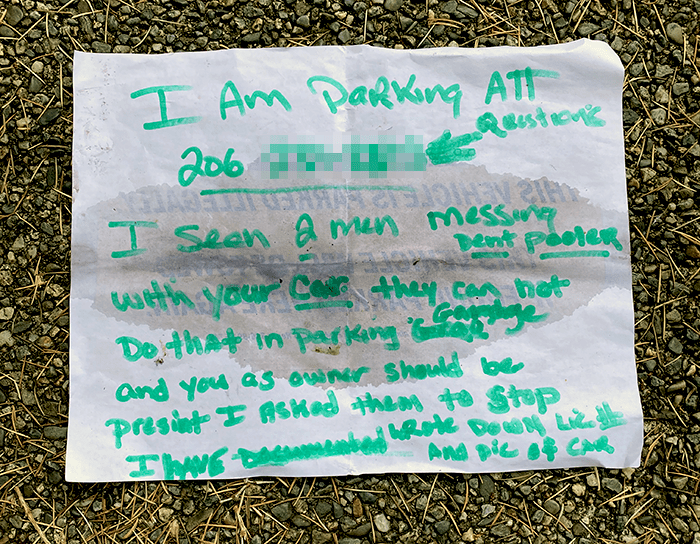 I Am Parking ATT
Questions
206
THIS VEHICLE IS PARKED ILLEGALLY
I Seen 2 men messing
Dent Pooler
with your Car they can not
Do that in parking
and you as owner should be
presint I Asked them to Stop
I HAVE Documented Wrote DOWN Lic #
AND pic of CAR